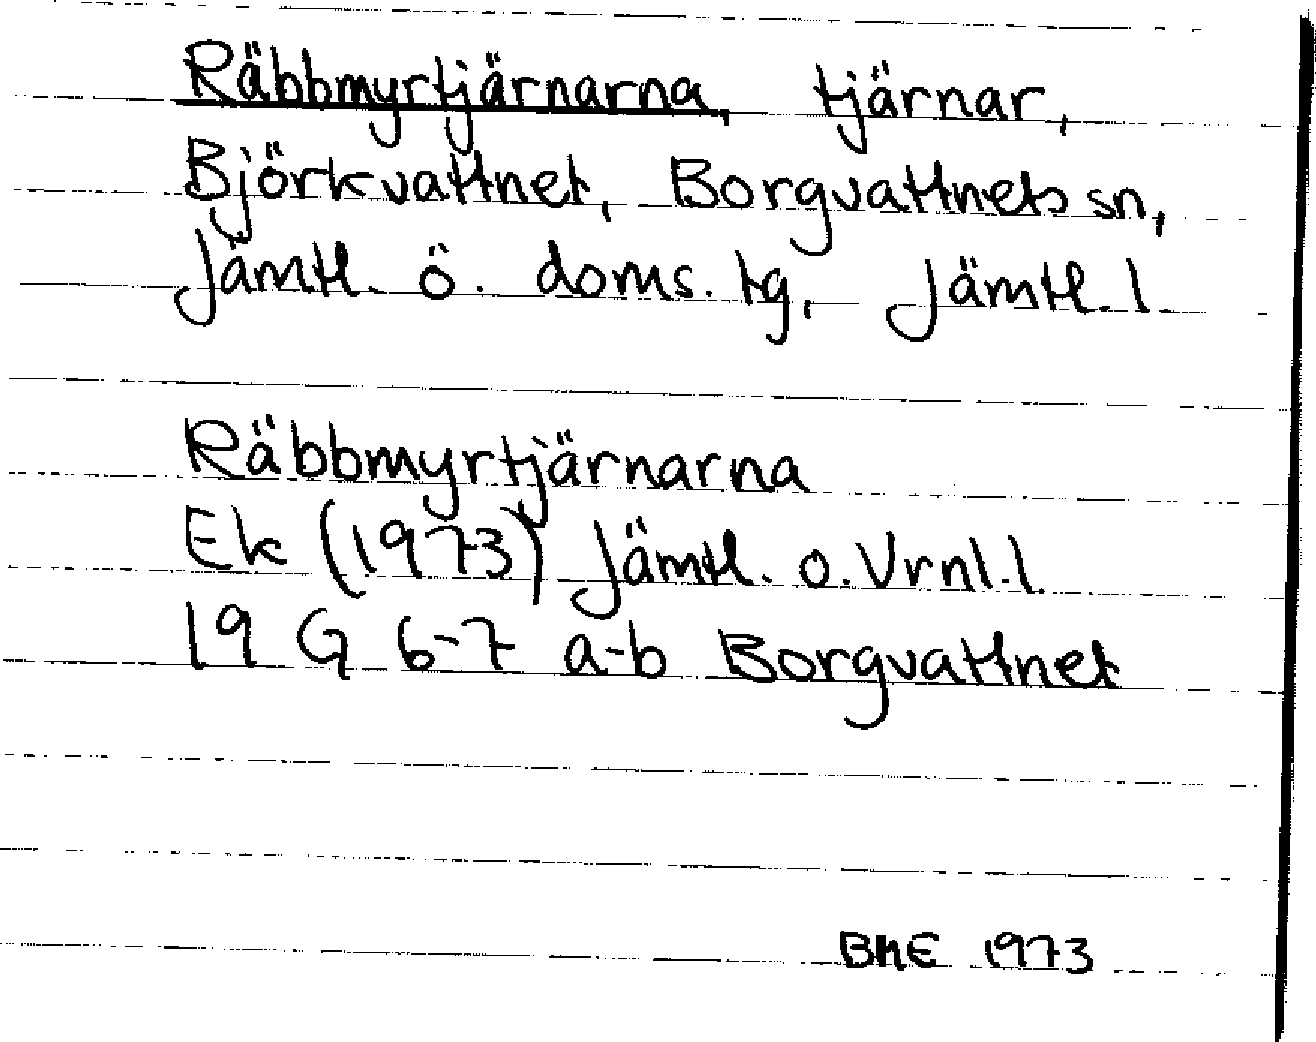 Räbbmyrtjärnarna, tjärnar,
Björkvattnet, Borgvattnets sn,
Jämtl. ö. doms. tg, Jämtl. l.
Räbbmyrtjärnarna
Ek (1973) Jämtl. o. Vrnl. l.
19 G 6-7 a-b Borgvattnet
BME 1973